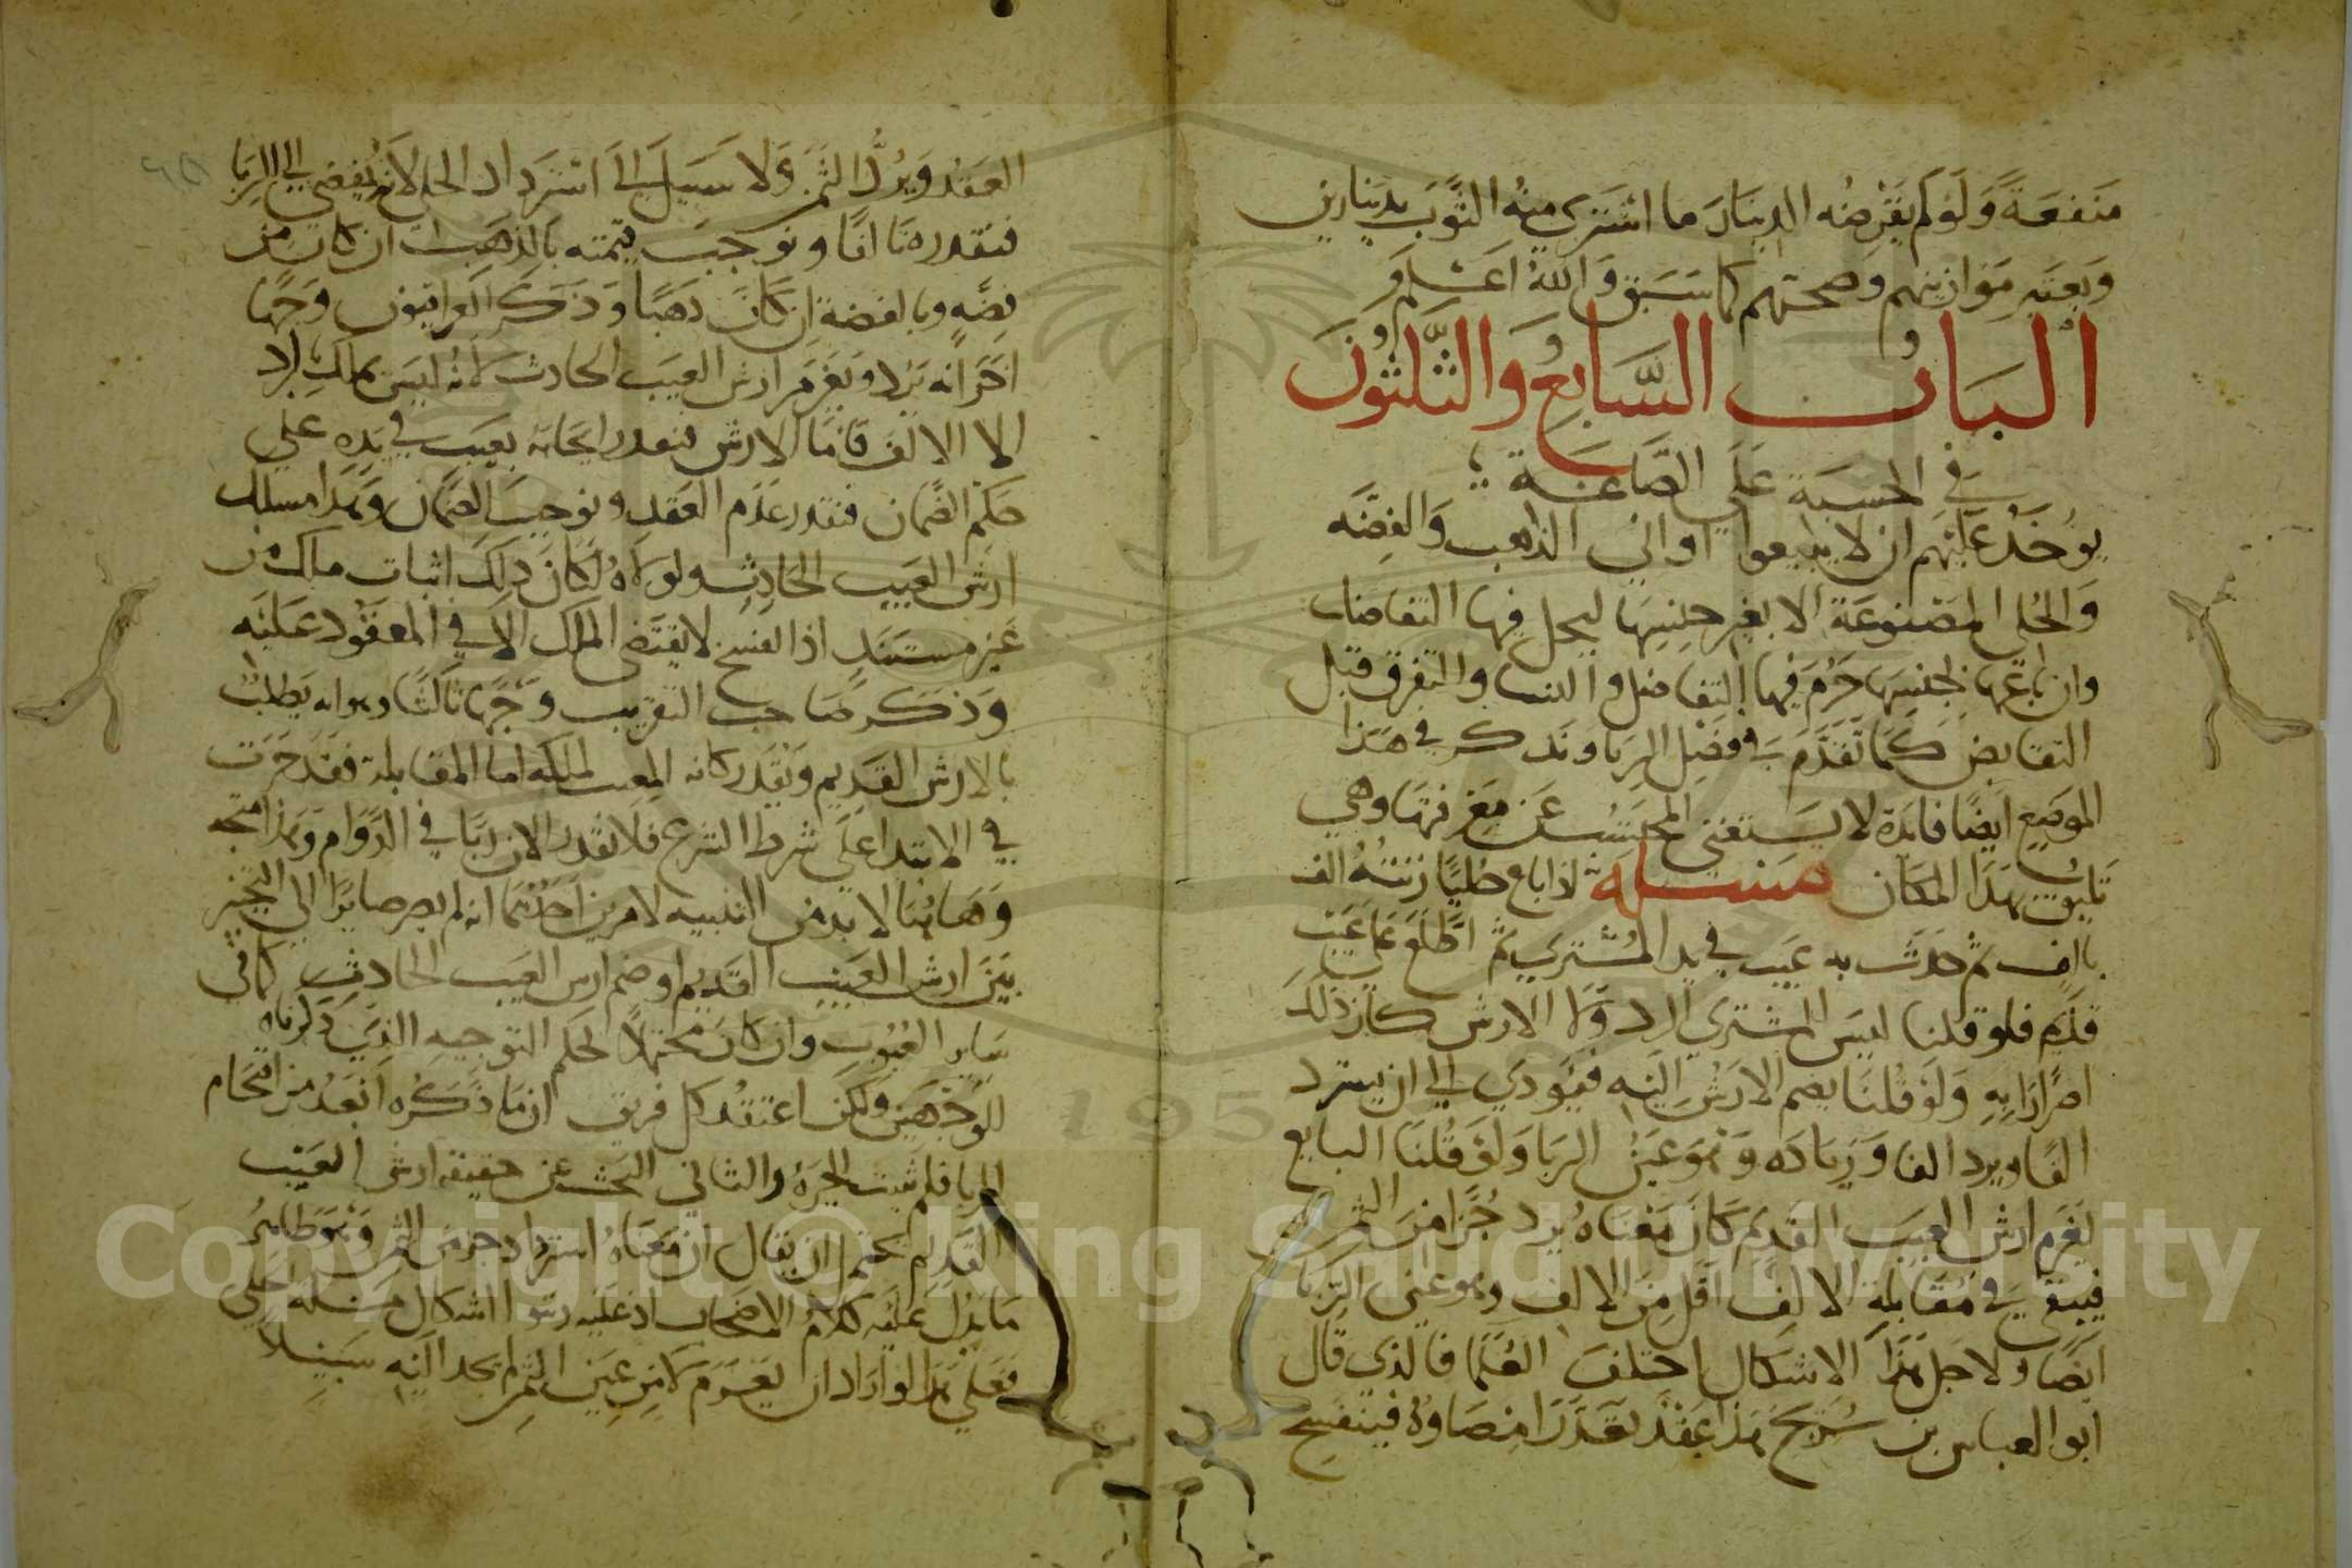 منفعة ولو لم يقرضه الدينار ما اشترى منه الثوب بدينارين
ويعتبر موازينهم وصحتهم كما سبق والله اعلم
الباب السابع والثلثون
في الحسبة على الصاغة
يوخذ عليهم ان لا يبيعوا اواني الذهب والفضه
والحلى المصنوعة الا بغير جنسها ليحل فيها التفاضل
وان باعها بجنسها حرم فيها التفاضل والنسا والتفرق قبل
التقابض كما تقدم في فصل الربا ونذكر في هذا
الموضع ايضا فائدة لا يستغنى المحتسب عن معرفتها وهي
تليق بهذا المكان مسلة اذا باع حليا زنته الف
بالف ثم حدث به عيب في يد المشتري ثم اطلع على عيب
قديم فلو قلنا ليس للمشتري الرد ولا الارش كان ذلك
اضرارا به ولو قلنا يضم الارش اليه فيودي الى ان يسترد
الفا ويرد الفا وزيادة وهو عين الربا ولو قلنا البايع
يغرم ارش العيب القديم كان معناه يرد جزا من الثمن
فيبقى في مقابلة الالف اقل من الالف وهو عين الربا
ايضا ولاجل هذا الاشكال اختلف العلما فالذي قال
ابو العباس بن سريج هذا عقد تعذر امضاوه فينفسخ
العقد ويرد الثمن ولا سبيل الى استرداد الحلى لانه يفضي الى الربا
فنقدره تالفا ونوجب قيمته بالذهب ان كان من
فضه وبالفضة ان كان ذهبا وذكر العراقيون وجها
اخر انه يرد ويغرم ارش العيب الحادث لانه ليس يملك رد
الا الالف فاما الارش فنقدر ايجابه بعيب في يده على
حكم الضمان فنقدر عدم العقد ونوجب الضمان وهذا مسلك
ارش العيب الحادث ولولاه لكان ذلك اثبات ملك من
غير مستند اذ الفسخ لا يقتضى الملك الا في المعقود عليه
وذكر صاحب التقريب وجها ثالثا وهو انه يطلب
بالارش القديم ونقدر كانه المعيب لملكه اما المقابلة فقد جرت
في الابتدا على شرط الشرع فلا نقدر الان ربا في الدوام وهذا متجه
وهاهنا لا بد من التنبيه لامرين احدهما انه لم يصر صاير الى التخيير
بين ارش العيب القديم او ضم ارش العيب الحادث كما في
ساير العيوب وان كان محتملا لحكم التوجيه الذي ذكرناه
للوجهين ولكن اعتقد كل فريق ان ما ذكره ابعد من اقتحام
الربا فلم يثبت الخيرة والثاني البحث عن حقيقه ارش العيب
القديم يحتمل ان يقال ان معناه استرداد جز من الثمن وهو ظاهر
ما يدل عليه كلام الاصحاب اذ عليه اشكال مسلة الحلى
فعلى هذا لو اراد ان يغرم لا من عين الثمن لم يجد اليه سبيلا
Copyright © King Saud University
195